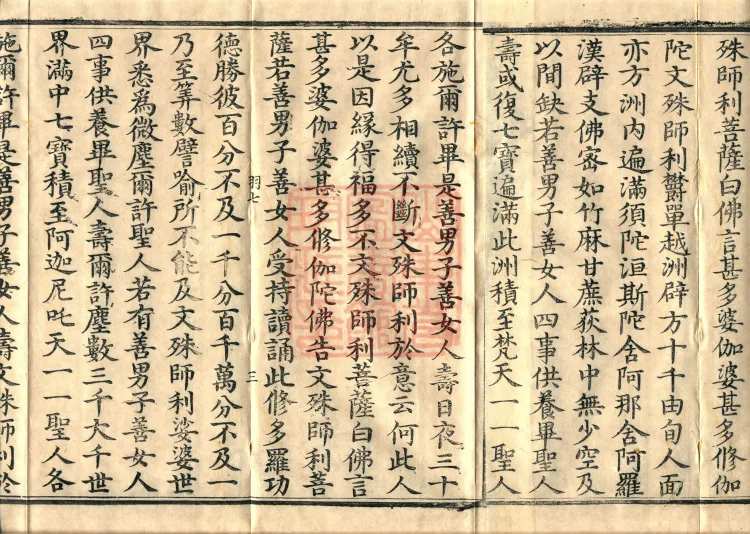 殊師利菩薩白佛言甚多婆伽婆甚多修伽
陀文殊師利欝單越洲辟方十千由旬人面
亦方洲內遍滿須陀洹斯陀含阿那含阿羅
漢辟支佛宻如竹麻甘蔗荻林中無少空及
以間缺若善男子善女人四事供養畢聖人
壽或復七寶遍滿此洲積至梵天一一聖人
各施爾許畢是善男子善女人壽日夜三十
牟尤多相續不斷文殊師利於意云何此人
以是因緣得福多不文殊師利菩薩白佛言
甚多婆伽婆甚多修伽陀佛告文殊師利菩
薩若善男子善女人受持讀誦此修多羅功
羽七
三
德勝彼百分不及一千分百千萬分不及一
乃至筭數譬喻所不能及文殊師利娑婆世
界悉為微塵爾許聖人若有善男子善女人
四事供養畢聖人壽爾許塵數三千大千世
界滿中七寶積至阿迦尼吒天一一聖人各
施爾許畢是善男子善女人壽文殊師利於